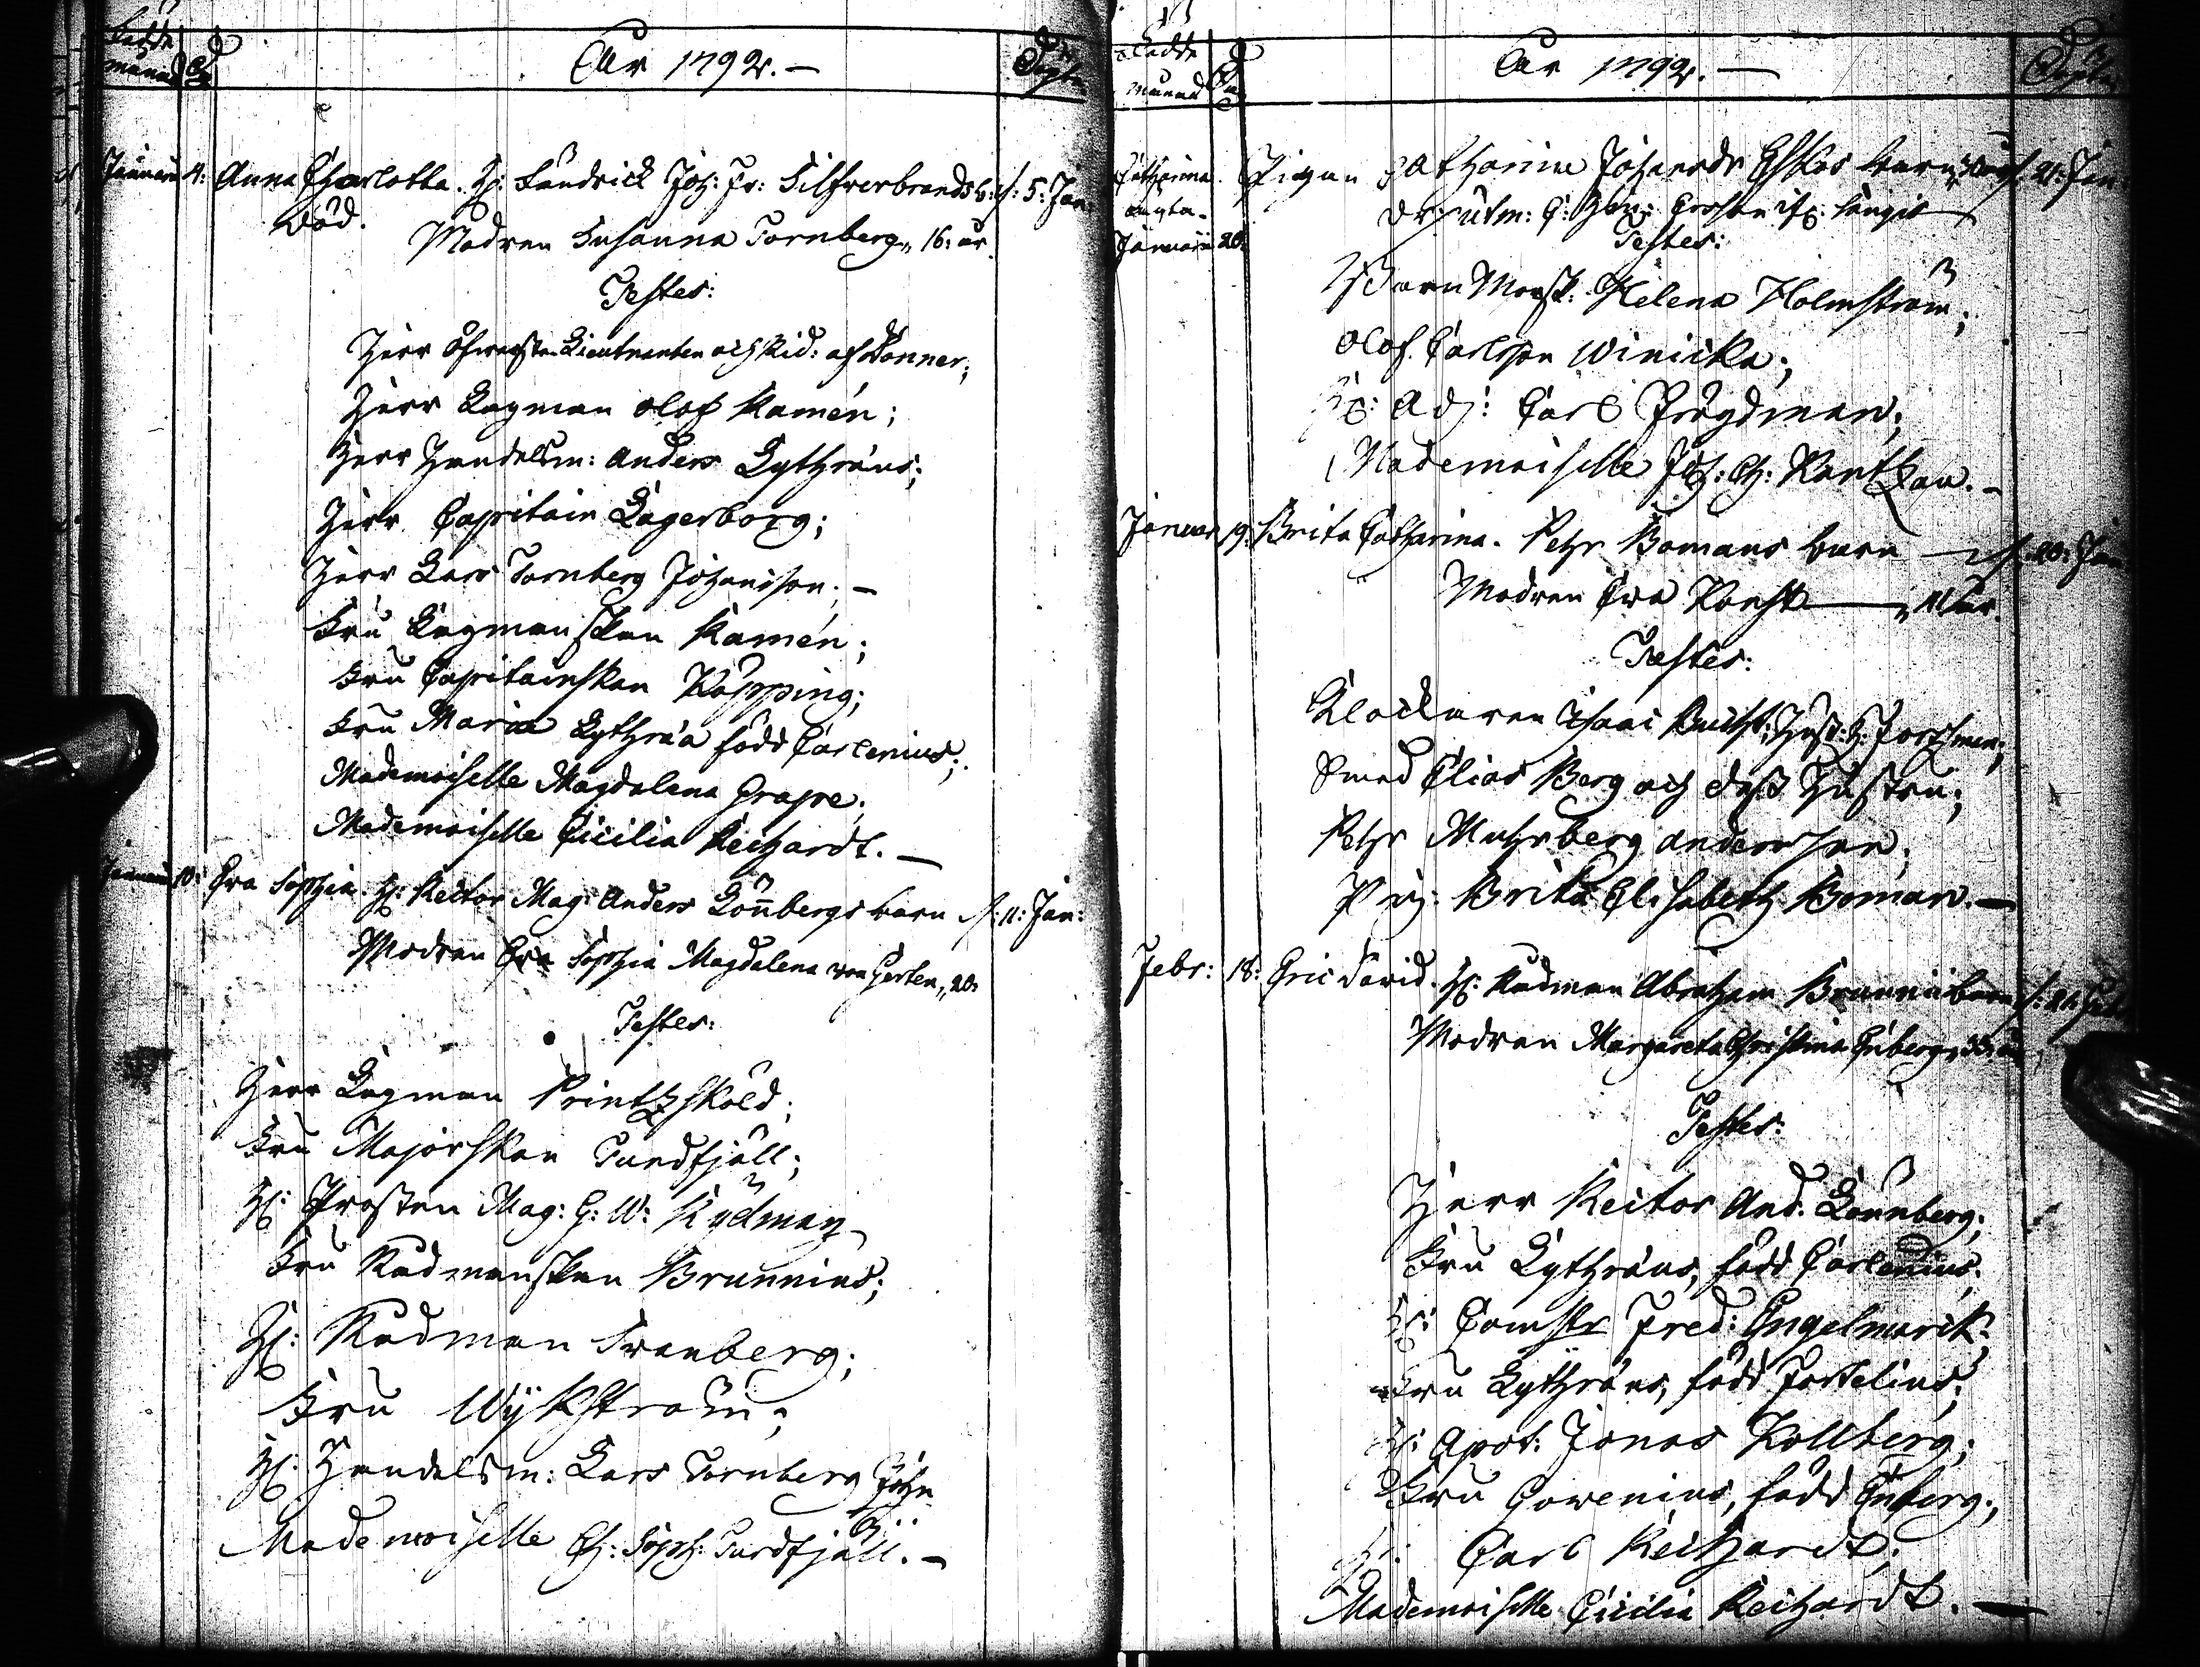 Födde
månad
Dag
År 1792. —
Döpte
Januarii 4: Anna Charlotta. H: Landrick Joh: Fr: Silfverbrands b: d. 5: Jan:
död.
Modren Susanna Tornberg „ 16: år.
Testes:
Herr Öfwerste Lieutnanten och Rid: af Donner;
Herr Lagman Olof Kamén;
Herr Handelsm: Anders Lythræus;
Herr Capitain Lagerborg;
Herr Lars Tornberg Johansson; —
Fru Lagmanskan Kamén;
Fru Capitainskan Köpping;
Fru Maria Lythræa född Carlenius;
Mademoiselle Magdalena Grape;
Mademoiselle Cicilia Reichardt. —
Januarii 10: Eva Sophia. H: Rector Mag: Anders Lönnbergs barn d. 11: Jan:
Modren Eva Sophia Magdalena von Gerten, 20.
Testes:
Herr Lagman Printzsköld;
Fru Majorskan Tundfjäll;
H: Prosten Mag: G: W: Rydman
Fru Rådmanskan Brunnius;
H: Rådman Tranberg;
Fru Wijkström;
H: Handelsm: Lars Tornberg Joh:n
Mademoiselle Ch: Soph: Tundfjäll. —
Födde
månad
Dag
År 1792. —
Döpte
Catharina
oägta.
Januarii 20:
Pigan Catharina Johansdr barn d. 21: Jan:
Testes:
Barn Morsk: Helena Holmström;
Olof Carlsson Winicka;
H: Adj: Carl Frögdman;
Mademoiselle Joh: Ch: Rantzau. —
Januar. 19: Brita Catharina. Petr Bomans barn — d. 20: Jan:
Modren Eva — år.
Testes:
Klockaren Isaac Hust: H: Forsman;
Smed Elias Berg och dess Hustru;
Petr Muhrberg Andersson;
Pig: Brita Elisabeth Boman. —
Febr: 18: Eric David. H: Rådman Abraham Brunnii barn d. 21. Febr:
Modren Margareta Christina Enberg, år
Testes:
Herr Rector And. Lönnberg;
Fru Lythræus, född Carlenius;
H: Fred: Engelmarck;
Fru Lythræus, född Forselius;
H: Apot: Jonas Kollberg;
Fru Corvenius, född Enberg;
H: Carl Reichardt;
Mademoiselle Cicilia Reichardt. —